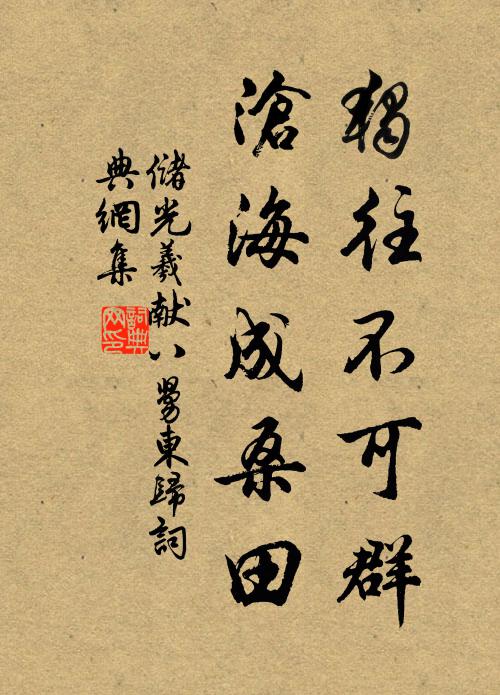 獨往不可群
滄海成桑田
儲光羲献八舅東歸詞
典網集
詞典
网印